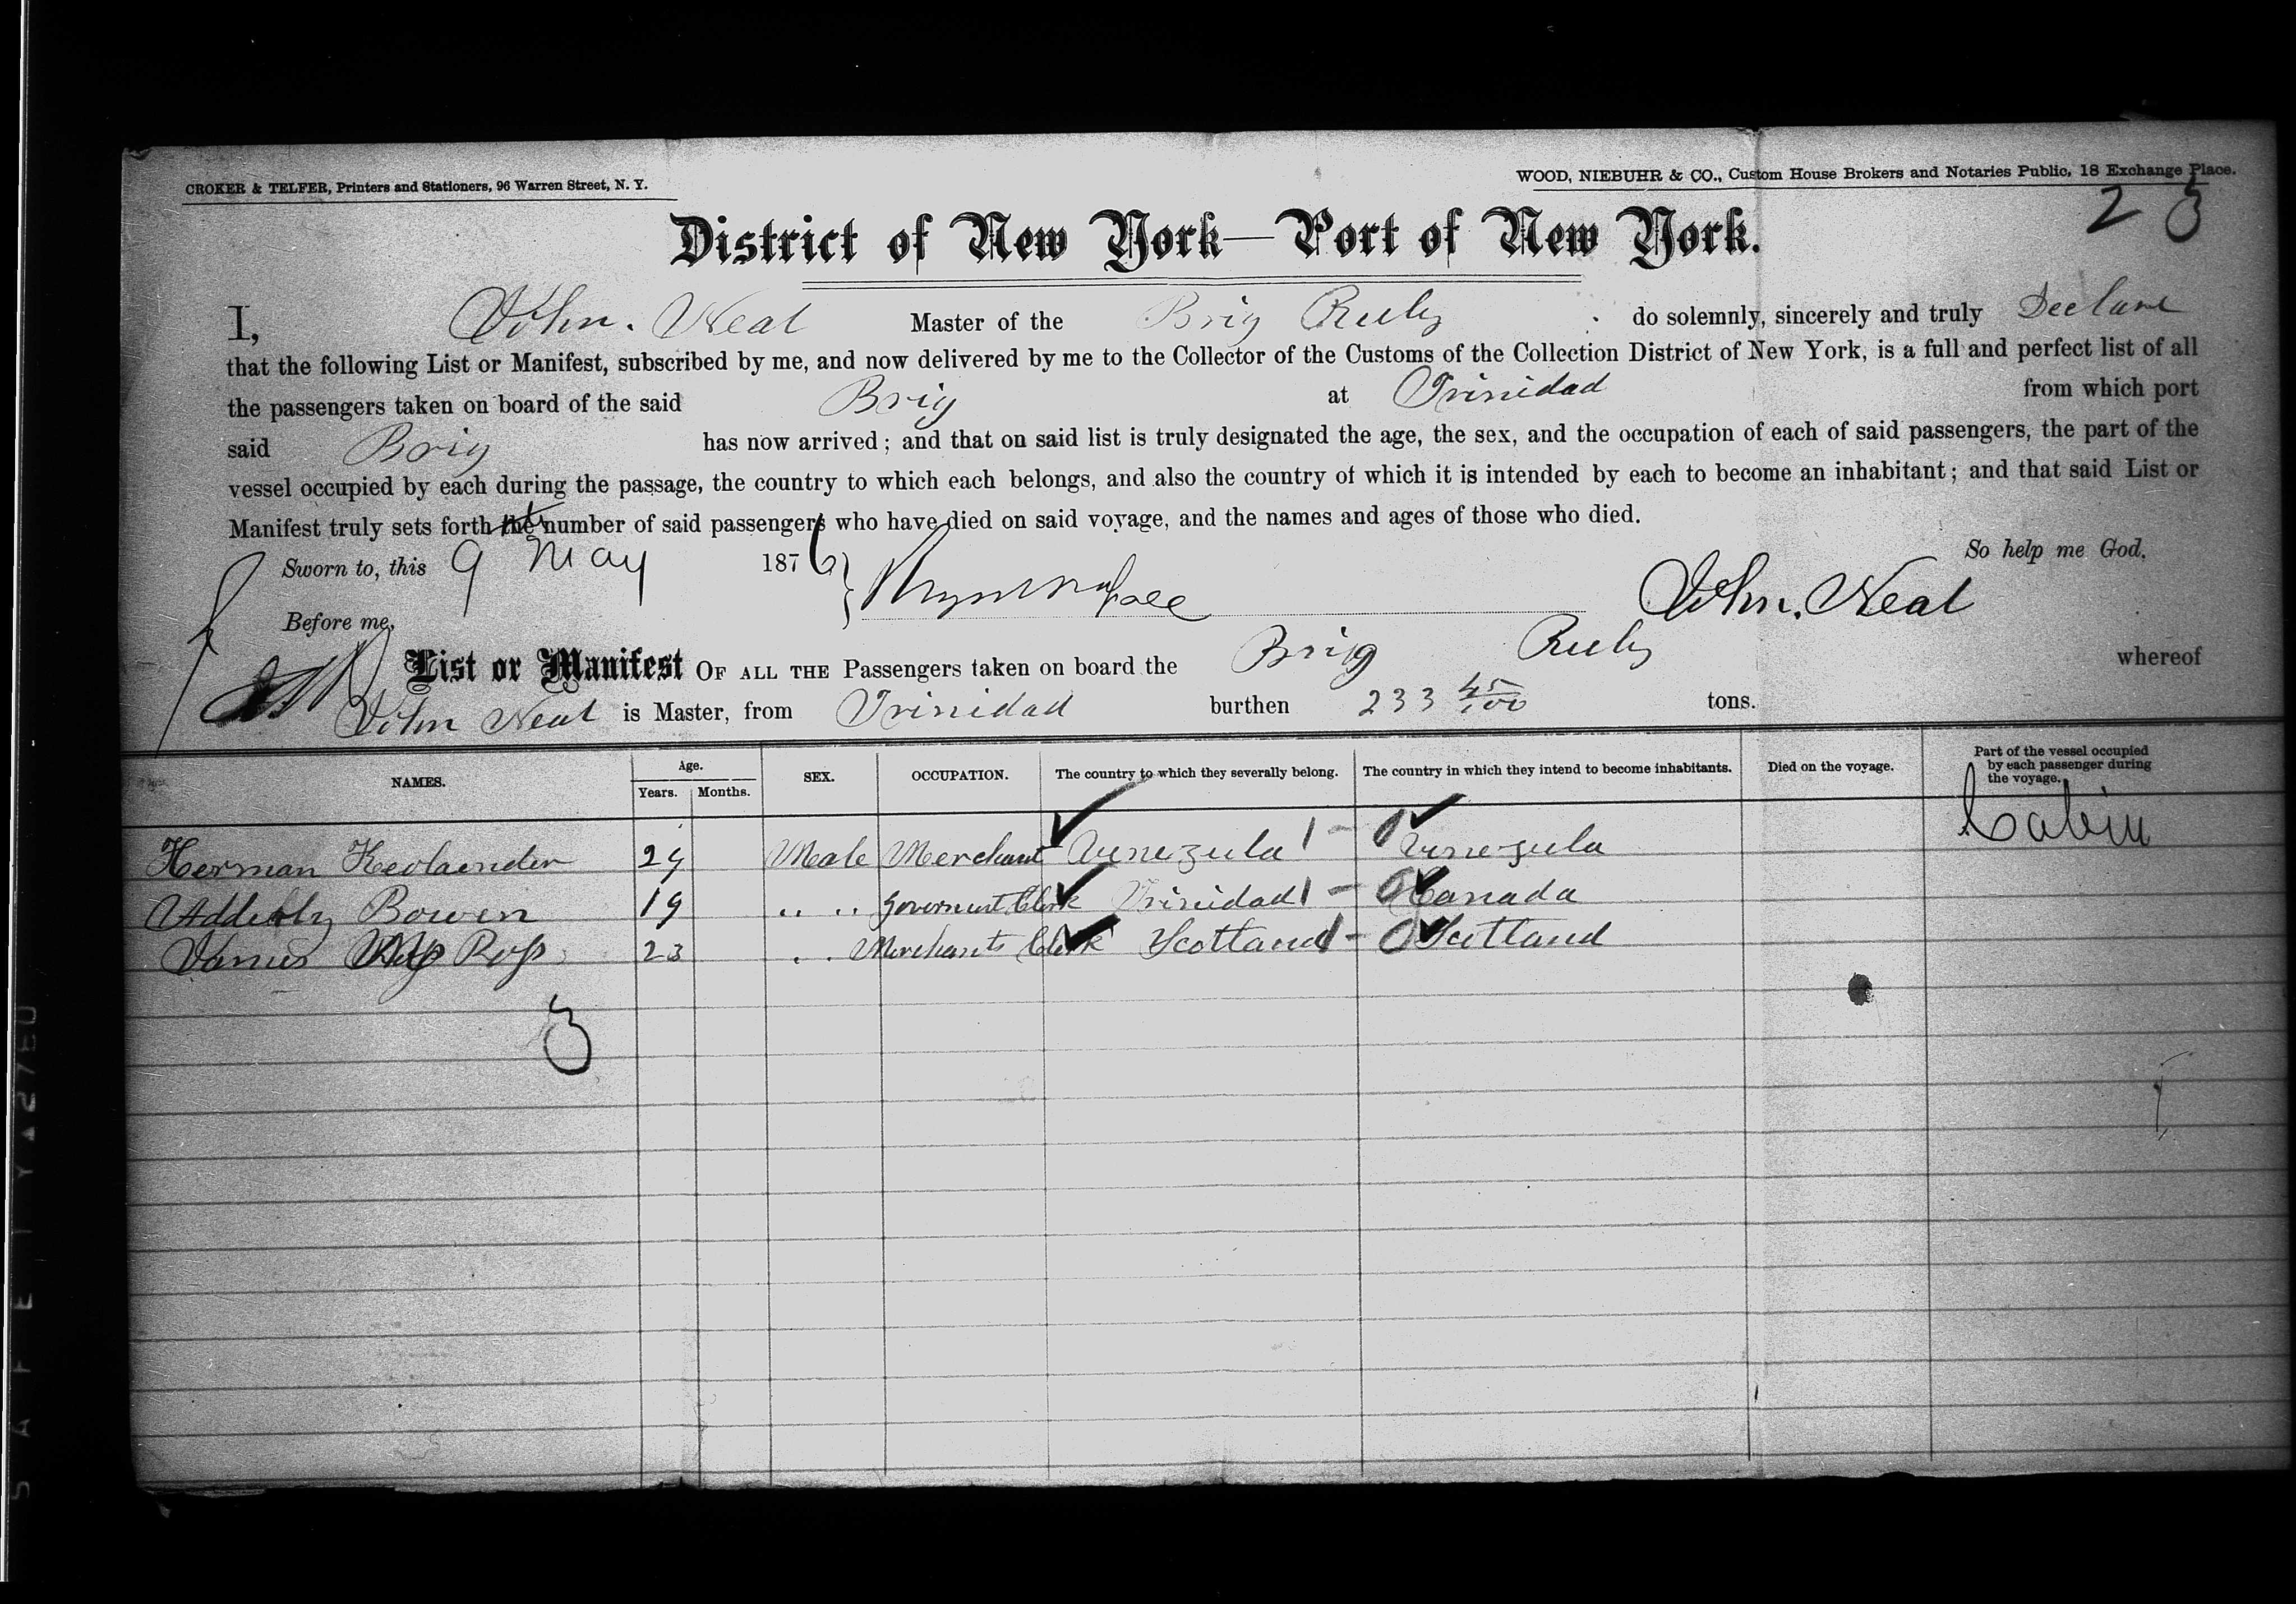 CROKER & TELFER, Printers and Stationers, 96 Warren Street, N. Y.
WOOD, NIEBUHR & CO., Custom House Brokers and Notaries Public, 18 Exchange Place.
2 3
District of New York—Port of New York.
I, John. Neal Master of the Brig Ruby do solemnly, sincerely and truly Declare
that the following List or Manifest, subscribed by me, and now delivered by me to the Collector of the Customs of the Collection District of New York, is a full and perfect list of all
the passengers taken on board of the said Brig at Trinidad from which port
said Brig has now arrived; and that on said list is truly designated the age, the sex, and the occupation of each of said passengers, the part of the
vessel occupied by each during the passage, the country to which each belongs, and also the country of which it is intended by each to become an inhabitant; and that said List or
Manifest truly sets forth the number of said passengers who have died on said voyage, and the names and ages of those who died.
So help me God.
Sworn to, this 9 May 1876
John. Neal
Before me,
List or Manifest OF ALL THE Passengers taken on board the Brig Ruby whereof
John Neal is Master, from Trinidad burthen 233 45/100 tons.
NAMES. Age. Years. Months. SEX. OCCUPATION. The country to which they severally belong. The country in which they intend to become inhabitants. Died on the voyage. Part of the vessel occupied by each passenger during the voyage.
Herman 29 Male Merchant Venezula 1 - 0 Venezula Cabin
Bowen 19 " " Government Clerk Trinidad 1 - 0 Canada
James Ross 23 " " Merchants Clerk Scotland 1 - 0 Scotland
3
SAFETY